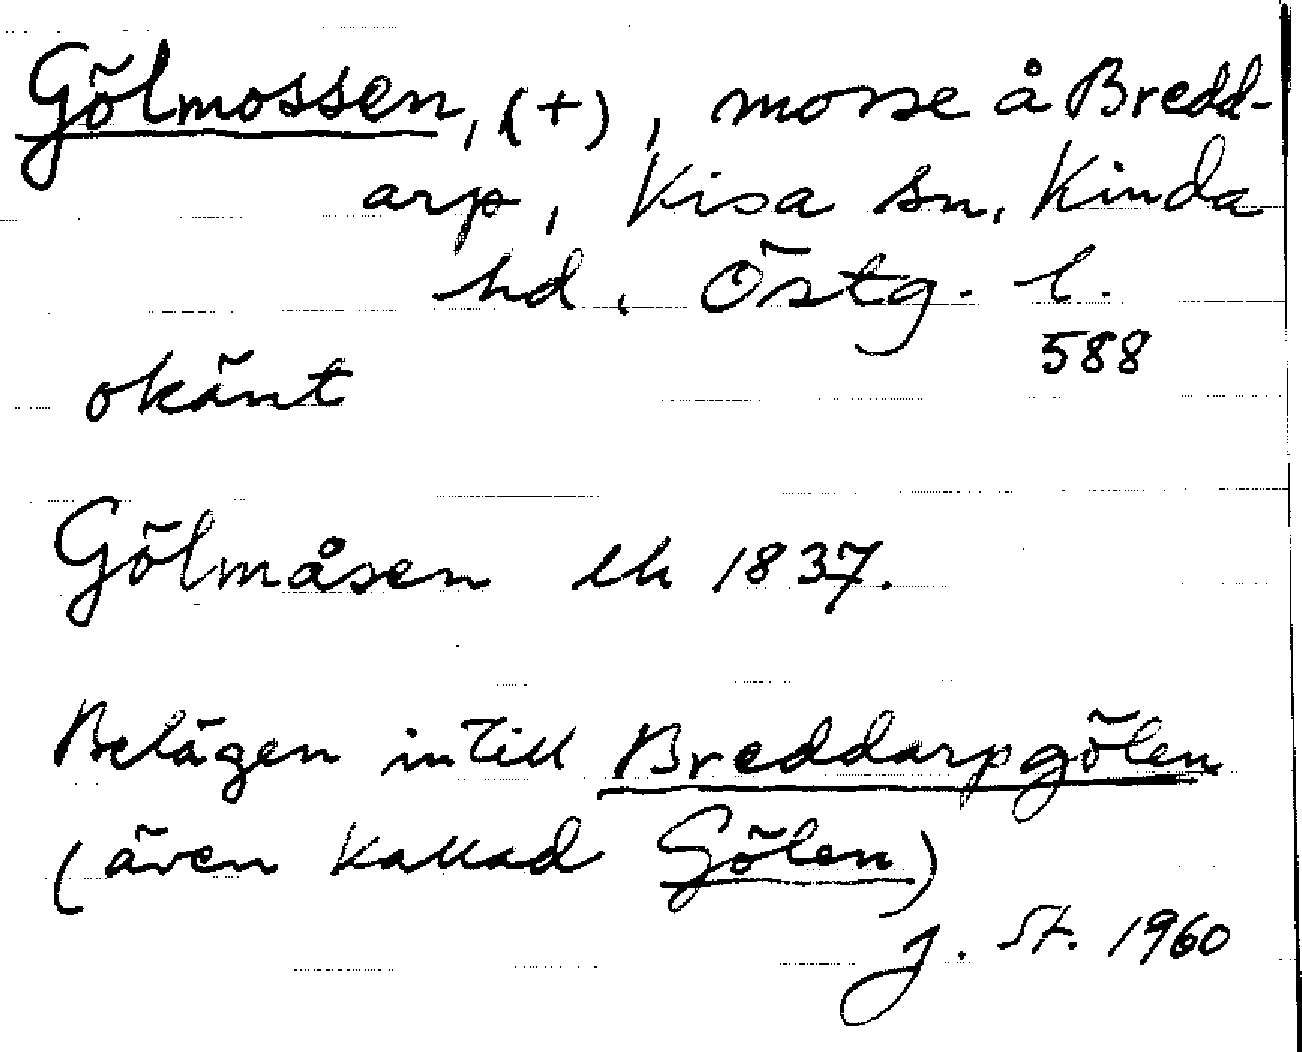 Gölmossen, (+), mosse å Bredd-
arp, Kisa sn, Kinda
hd. Östg. l.
588
okänt
Gölmåsen lh 1837.
Belägen intill Breddarpgölen
(även kallad Gölen)
J. St. 1960